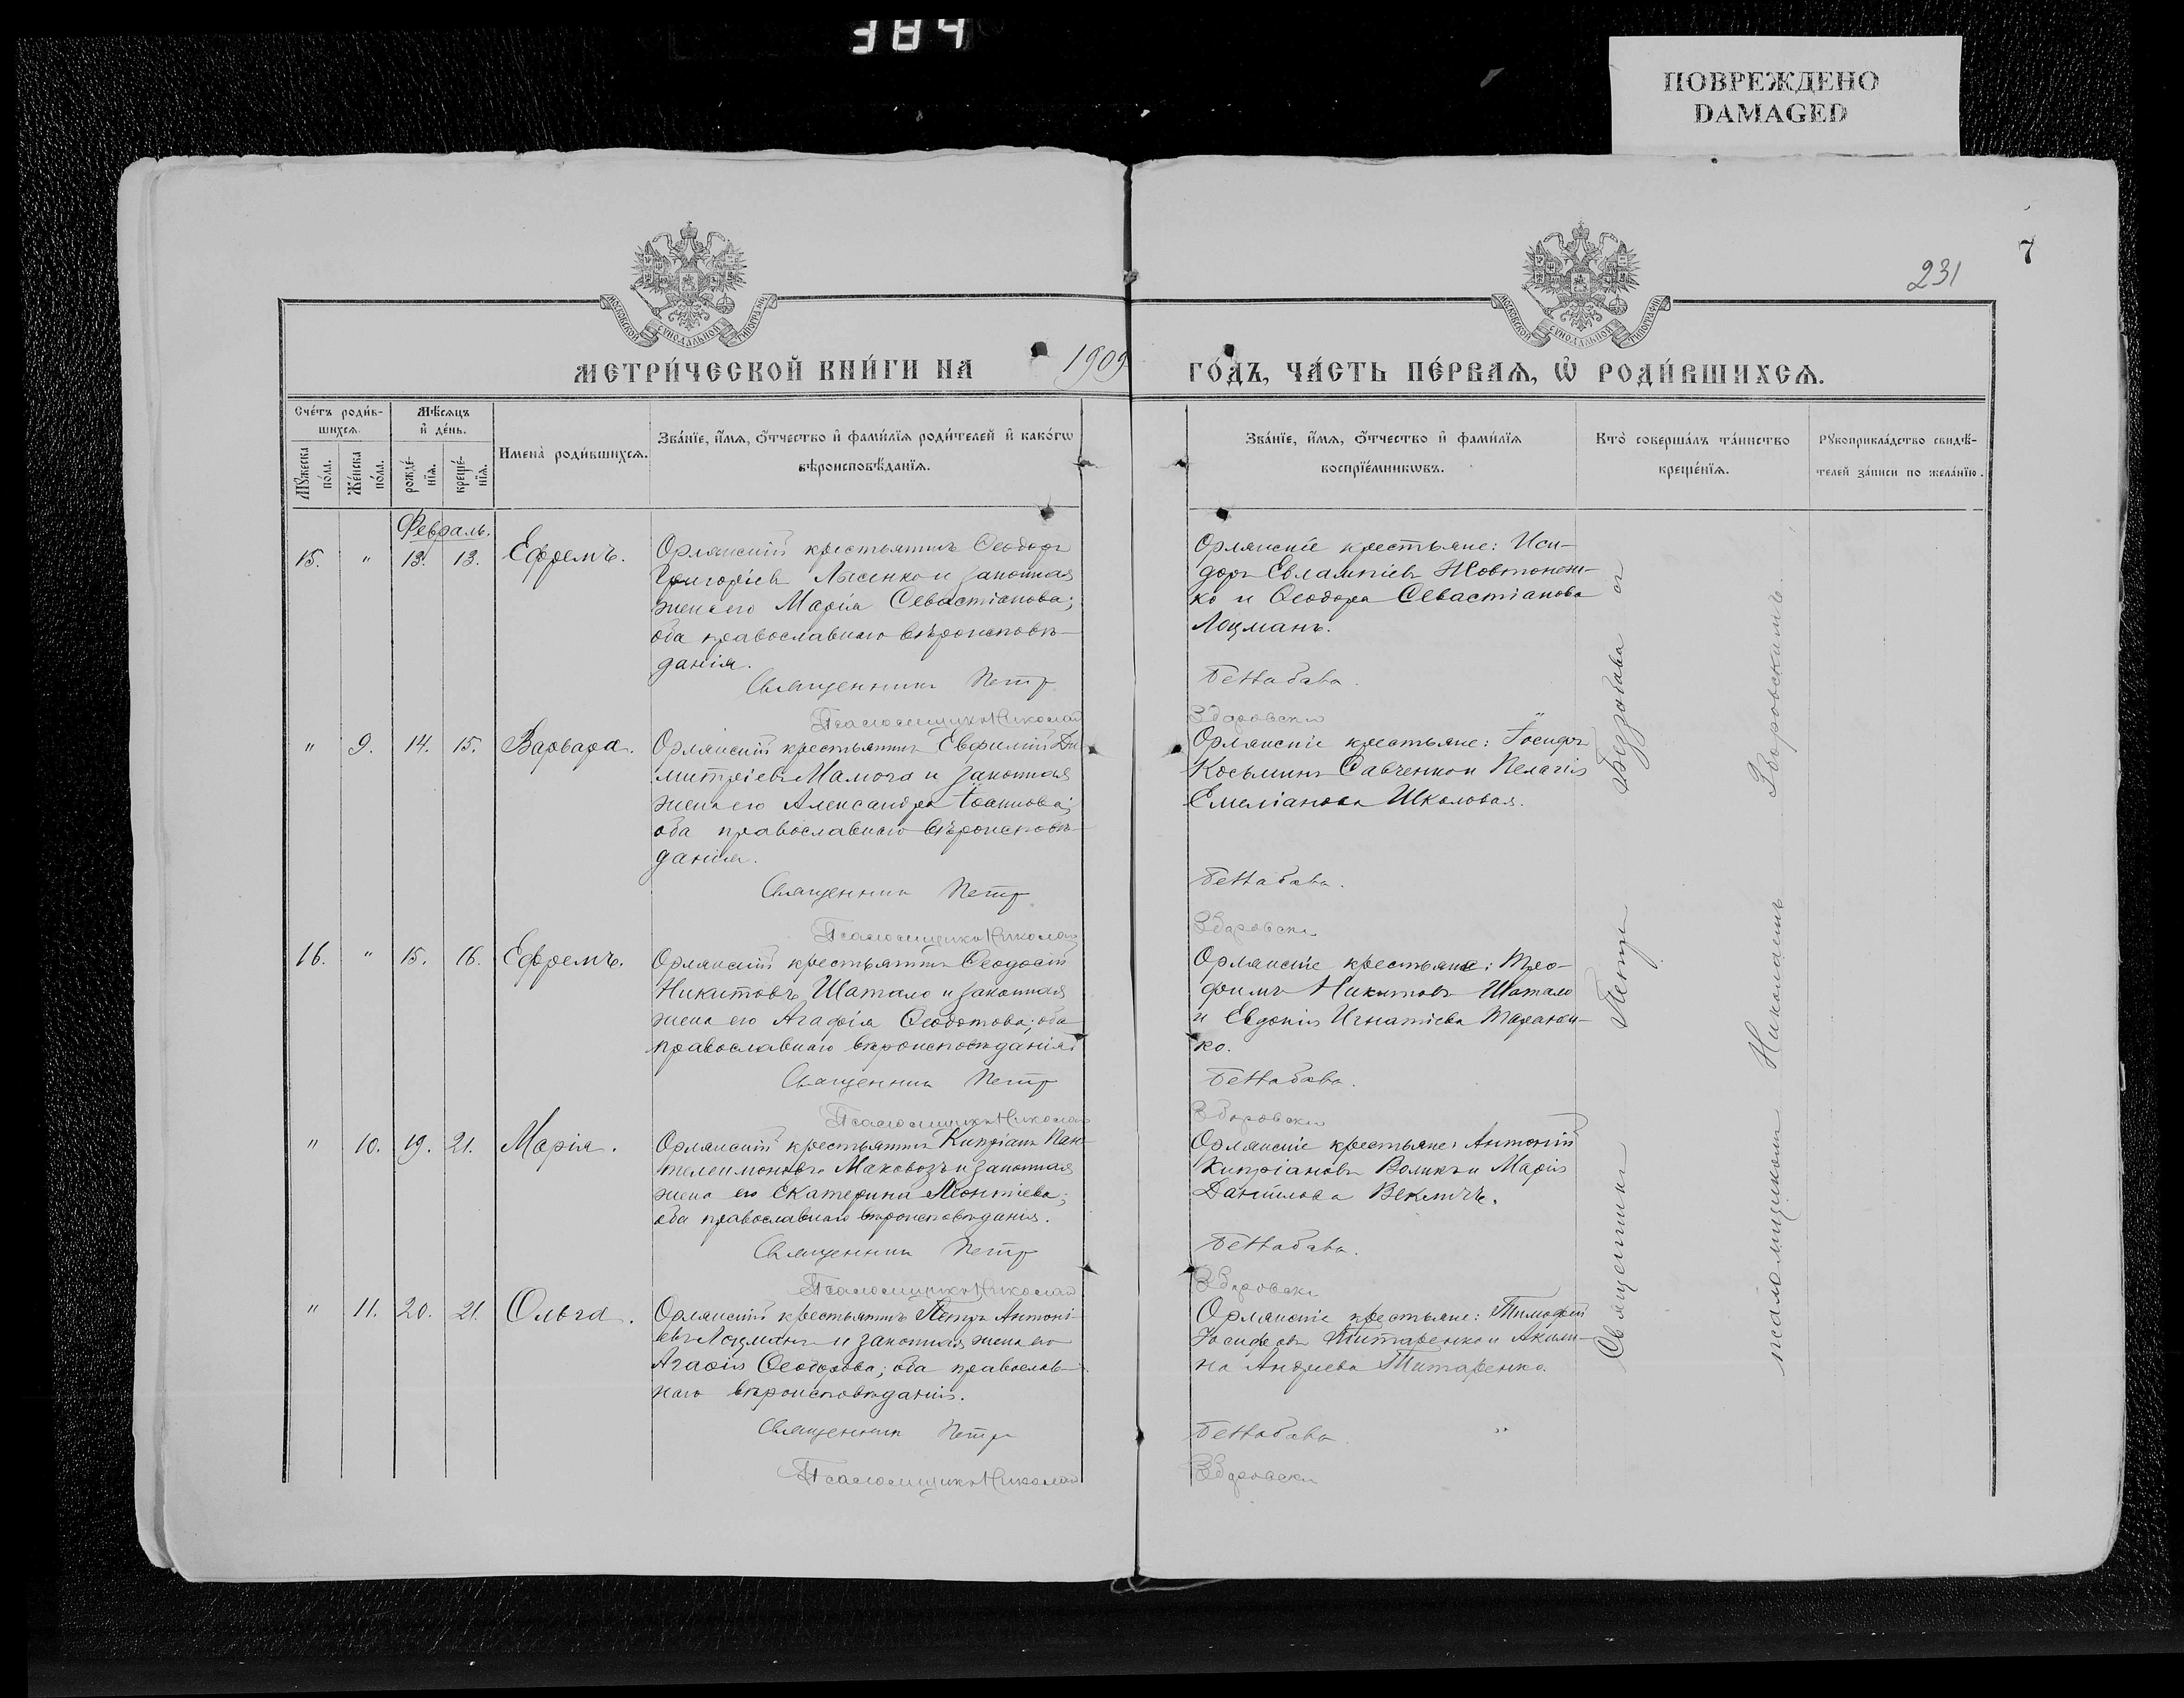 384
ПОВРЕЖДЕНО
DAMAGED
7
231
МОСКОВСКОЙ СУНОДАЛЬНОЙ ТИПОГРАФIИ
МОСКОВСКОЙ СУНОДАЛЬНОЙ ТИПОГРАФIИ
МЕТРИ́ЧЕСКОЙ КНИ́ГИ НА 1909 ГО́ДЪ, ЧА́СТЬ ПЕ́РВАѦ, Ѡ҆ РОДИ́ВШИХСѦ.
Сче́тъ роди́в-
шихсѧ.
Мѣ́сѧцъ
и҆ де́нь.
Мꙋ́жеска
по́ла.
Же́нска
по́ла.
рожде́-
нїѧ.
креще́-
нїѧ.
Имена̀ роди́вшихсѧ.
Зва́нїе, и҆́мѧ, ѻ҆́тчество и҆ фами́лїѧ роди́телей и҆ како́гѡ
вѣроисповѣ́данїѧ.
Зва́нїе, и҆́мѧ, ѻ҆́тчество и҆ фами́лїѧ
воспрїе́мникѡвъ.
Кто̀ соверша́лъ та́инство
креще́нїѧ.
Рꙋкоприкла́дство свидѣ́-
телей за́писи по жела́нїю.
Февраль.
15. " 13. 13. Ефремъ.
Орлянскій крестьянинъ Ѳеодоръ
Григоріевъ Лысенко и законная
жена его Марія Севастіанова;
оба православнаго вѣроисповѣ-
данія.
Священникъ Петръ
Псаломщикъ Николай
Орлянскіе крестьяне: Иси-
доръ Евлампіевъ Жовтонож-
ко и Ѳеодора Севастіанова
Лоцманъ.
Беззабава.
Зборовскій
" 9. 14. 15. Варвара.
Орлянскій крестьянинъ Евфимій Ди-
митріевъ Мамога и законная
жена его Александра Іоаннова;
оба православнаго вѣроисповѣ-
данія.
Священникъ Петръ
Псаломщикъ Николай
Орлянскіе крестьяне: Іосифъ
Косьминъ Савченко и Пелагія
Емеліанова Школовая.
Беззабава.
Зборовскій
16. " 15. 16. Ефремъ.
Орлянскій крестьянинъ Ѳеодосій
Никитовъ Шатало и законная
жена его Агафія Ѳеодотова; оба
православнаго вѣроисповѣданія.
Священникъ Петръ
Псаломщикъ Николай
Орлянскіе крестьяне: Тро-
фимъ Никитовъ Шатало
и Евдокія Игнатіева Таранен-
ко.
Беззабава.
Зборовскій
" 10. 19. 21. Марія.
Орлянскій крестьянинъ Кипріанъ Пан-
телеимоновъ Маковозъ и законная
жена его Екатерина Леонтіева;
оба православнаго вѣроисповѣданія.
Священникъ Петръ
Псаломщикъ Николай
Орлянскіе крестьяне: Антоній
Кипріановъ Воликъ и Марія
Даніилова Векличъ.
Беззабава.
Зборовскій
" 11. 20. 21. Ольга.
Орлянскій крестьянинъ Петръ Антоні-
евъ Лоцманъ и законная жена его
Агафія Ѳеодорова; оба православ-
наго вѣроисповѣданія.
Священникъ Петръ
Псаломщикъ Николай
Орлянскіе крестьяне: Тимофей
Іосифовъ Титаренко и Акили-
на Андреева Титаренко.
Беззабава.
Зборовскій
Священникъ Петръ Беззабава съ
псаломщикомъ Николаемъ Зборовскимъ.